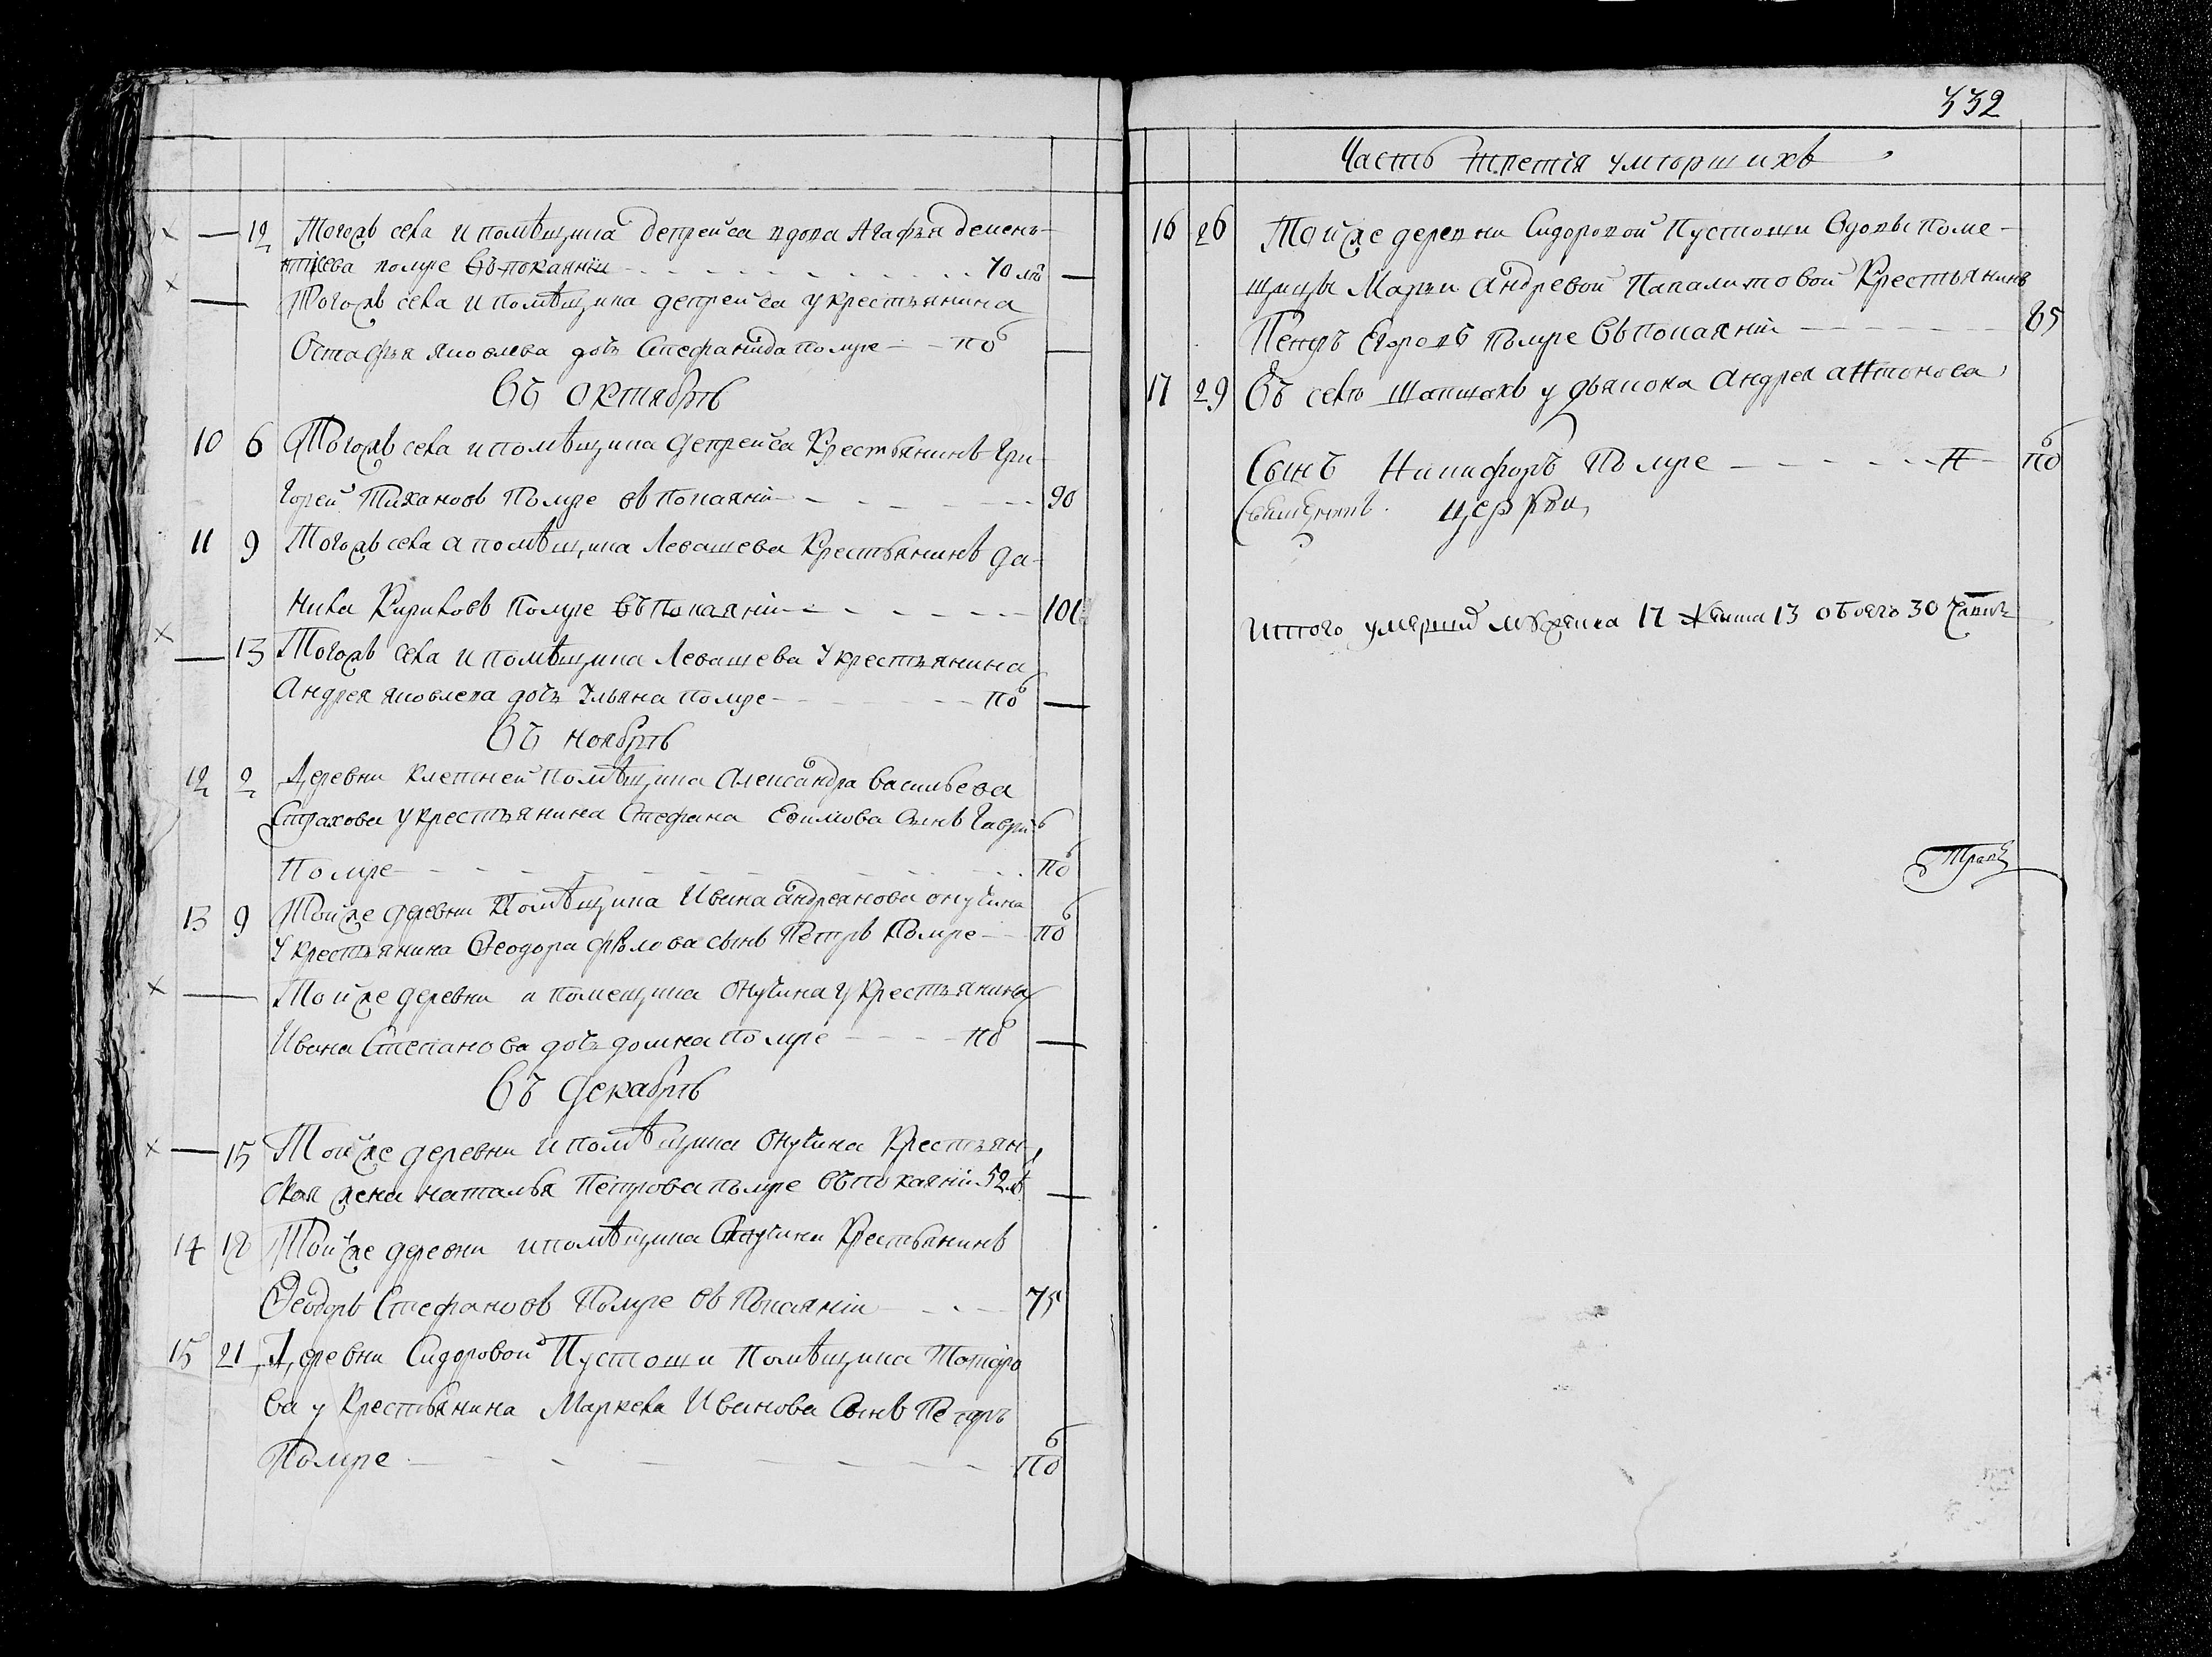 — 12 Тогожъ села и помѣщика депрейса вдова Агафья демень-
тиева помре въ покаянии 70 лѣ —
— Тогожъ села и помѣщика депрейса у крестьянина
Остафья яковлева дочь Стефанида помре — по 6 —
Въ октябрѣ
10 6 Тогожъ села и помѣщика депрейса Крестьянинъ Гри-
горей Тихановъ Помре въ Покаянїи 90
11 9 Тогожъ села а помѣщика Левашева Крестьянинъ да-
нила Кириловъ Помре въ Покаянїи 101
— 13 Тогожъ села и помѣщика Левашева У крестьянина
Андрея яковлева дочь Ульяна помре — по 6 —
Въ ноябрѣ
12 2 Деревни клетней помѣщика Александра васильева
Страхова у крестьянина Стефана Ефимова Сынъ Гаврил
Помре по 6
13 9 Тойже деревни Помѣщика Ивана андреянова онучина
У крестьянина Феодора фролова сынъ Петръ Помре по 6
— Той же деревни а помещика Онучина у Крестьянина
Ивана Степанова дочь домна Помре по 6 —
Въ декабрѣ
— 15 Той же деревни и помѣщика Онучина Крестьян-
ская жена наталья Петрова помре въ покаянїи 52 лѣ —
14 18 Тойже деревни и помѣщика Онучина Крестьянинъ
Феодоръ Стефановъ Помре въ Покаянїи 75
15 21 Деревни Сидоровой Пустоши Помѣщика
ва у Крестьянина Маркела Иванова Сынъ Петръ
Помре по 6
332
Часть третїя умѣоршихъ
16 26 Тойже деревни Сидоровой Пустоши Вдовы Поме-
щицы Марьи андревой Крестьянинъ
Петръ Егоровъ Помре въ покаянїи 85
17 29 Въ селѣ Шапщахъ у дьякона Андрея антонова
Сынъ Никифоръ Помре по 6
церкви
Итого умерших мѣжеска 17 женска 13 обоего 30